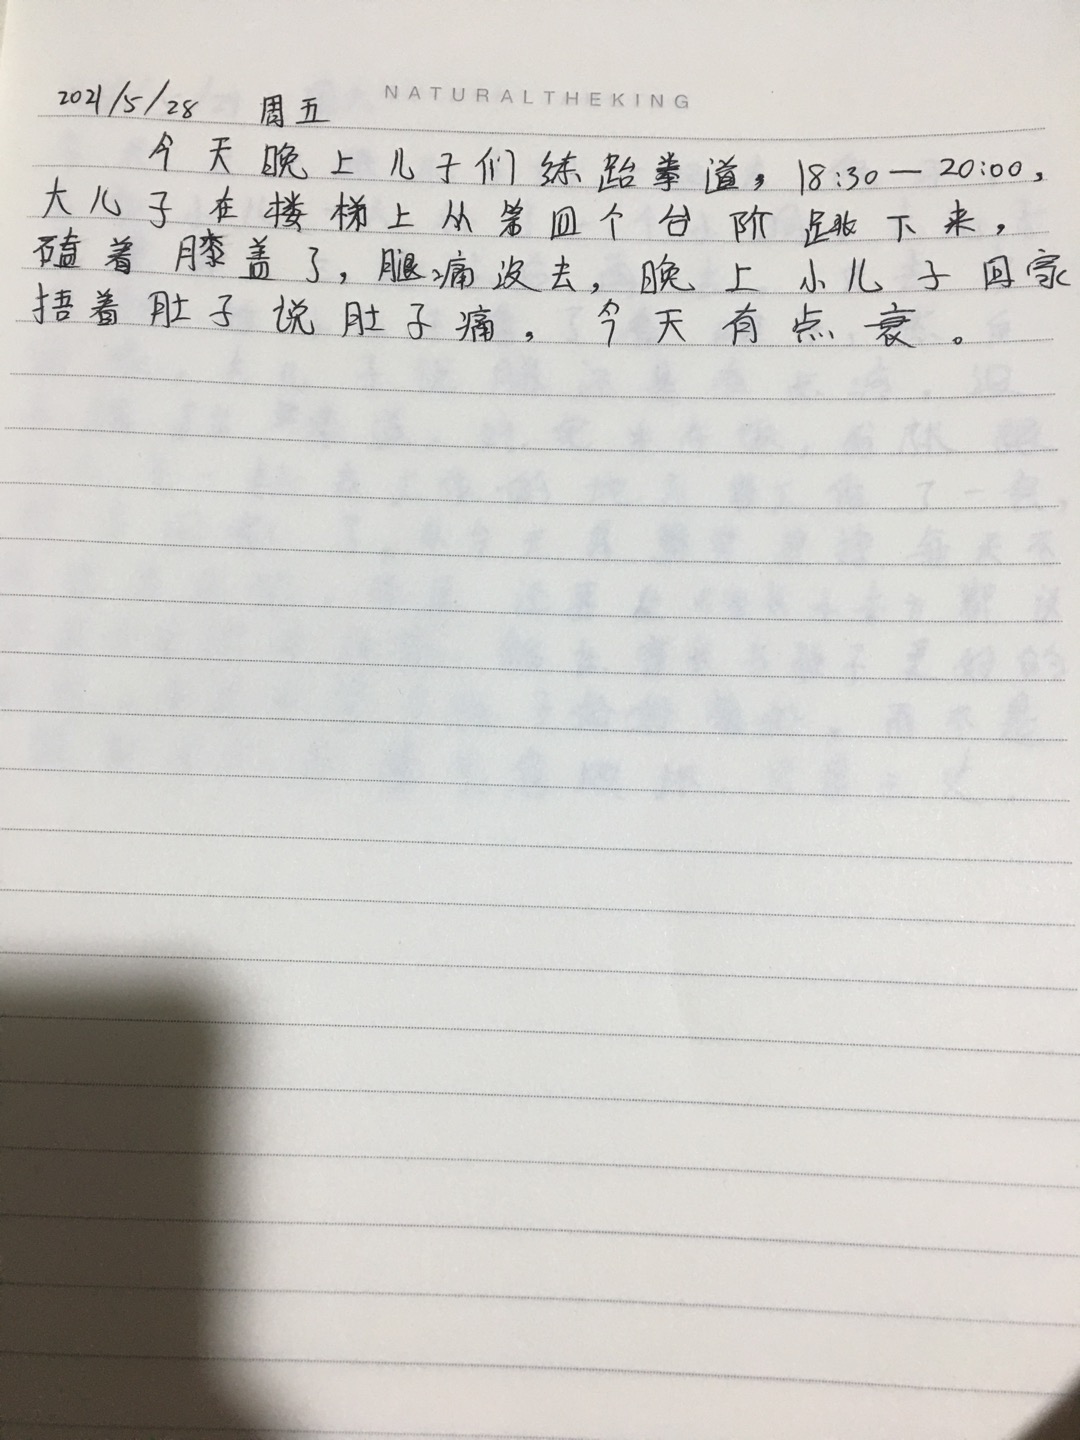 NATURALTHEKING
2021/5/28 周五
今天晚上儿子们练跆拳道,18:30—20:00,
大儿子在楼梯上从第四个台阶跳下来,
磕着膝盖了,腿痛没去,晚上小儿子回家
捂着肚子说肚子痛,今天有点衰。